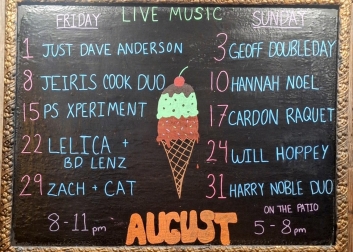 LIVE MUSIC
FRIDAY
1 JUST DAVE ANDERSON
8 JEIRIS COOK DUO
15 PS XPERIMENT
22 LELICA +
BD LENZ
29 ZACH + CAT
8-11 pm
SUNDAY
3 GEOFF DOUBLEDAY
10 HANNAH NOEL
17 CARDON RAQUET
24 WILL HOPPEY
31 HARRY NOBLE DUO
ON THE PATIO
5-8 pm
AUGUST